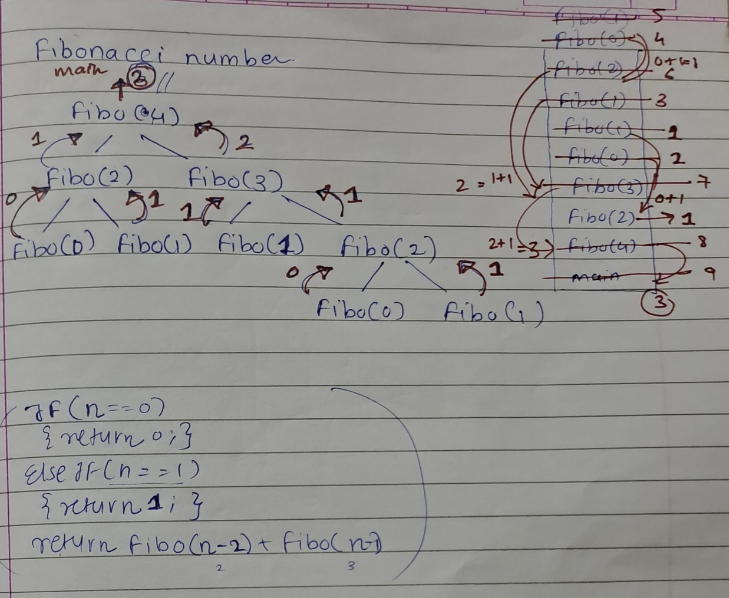 Fibonacci number
main 3 //
fibo(4)
1 2
fibo(2) fibo(3)
0 1 1 1
fibo(0) fibo(1) fibo(1) fibo(2)
0 1
fibo(0) fibo(1)
fibo(1) 5
fibo(0) 4
0+1=1
fibo(2) 6
fibo(1) 3
fibo(1) 1
fibo(0) 2
2 = 1+1 fibo(3) 7
0+1
fibo(2) → 1
2+1=3 fibo(4) 8
main 9
3
If(n==0)
{ return 0; }
Else If(n==1)
{ return 1; }
return fibo(n-2) + fibo(n-1)
2 3